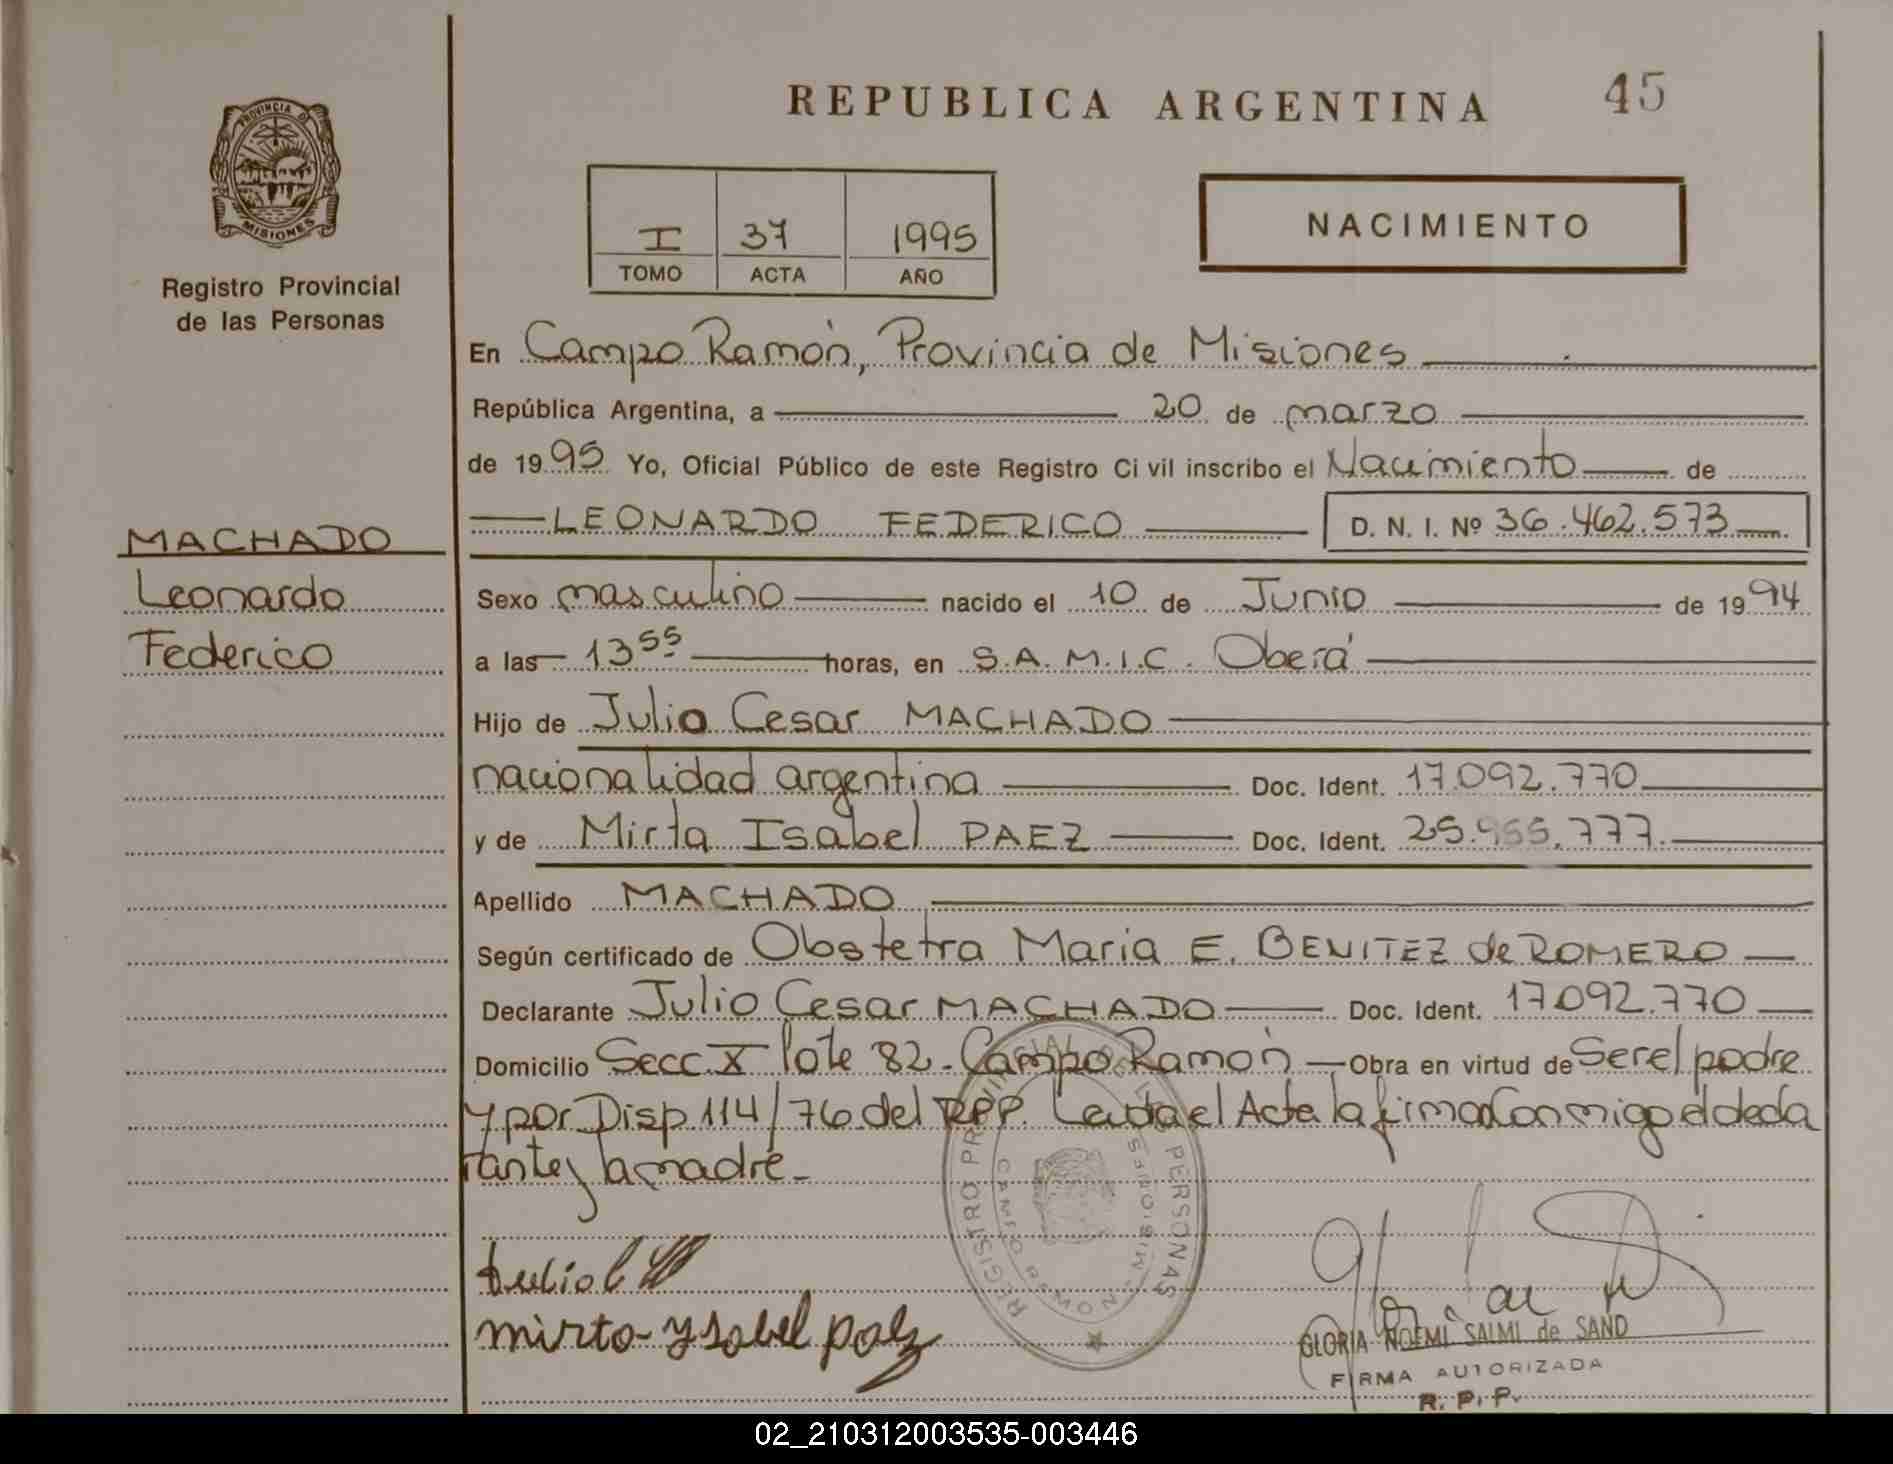 REPUBLICA ARGENTINA
45
PROVINCIA DE
MISIONES
Registro Provincial
de las Personas
I 37 1995
TOMO ACTA AÑO
NACIMIENTO
En Campo Ramón, Provincia de Misiones
República Argentina, a 20 de marzo
de 1995 Yo, Oficial Público de este Registro Civil inscribo el Nacimiento de
LEONARDO FEDERICO D. N. I. Nº 36.462.573
MACHADO
Leonardo
Federico
Sexo masculino nacido el 10 de Junio de 1994
a las 13 55 horas, en S.A.M.I.C. Oberá
Hijo de Julio Cesar MACHADO
nacionalidad argentina Doc. Ident. 17.092.770
y de Mirta Isabel PAEZ Doc. Ident. 25.955.777.
Apellido MACHADO
Según certificado de Obstetra Maria E. BENITEZ de ROMERO
Declarante Julio Cesar MACHADO Doc. Ident. 17.092.770
Domicilio Secc. X lote 82 - Campo Ramón Obra en virtud de Ser el padre
y por Disp. 114/76 del RPP. Leida el Acta la firman Conmigo el decla
rante y la madre.-
REGISTRO PROVINCIAL DE LAS PERSONAS
CAMPO RAMON - MISIONES
Julio C
mirta ysabel paez
GLORIA NOEMI SALMI de SAND
FIRMA AUTORIZADA
R. P. P.
02_210312003535-003446